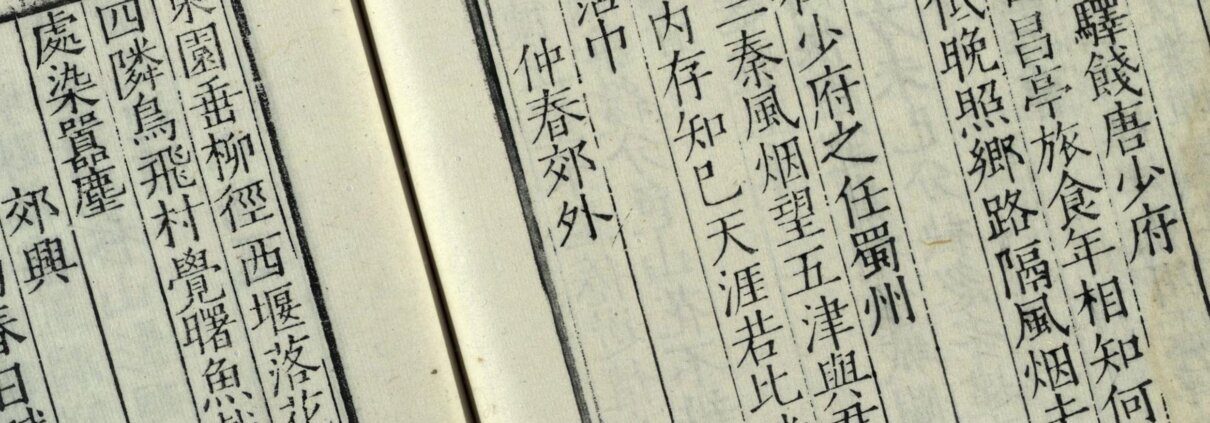 驛餞唐少府
昌亭旅食年相知何
低晚照鄉路隔風烟去
少府之任蜀州
三秦風烟望五津與君
内存知已天涯若比
沾巾
仲春郊外
東園垂柳徑西堰落花
四隣鳥飛村覺曙魚戲
處染囂塵
郊興
春日